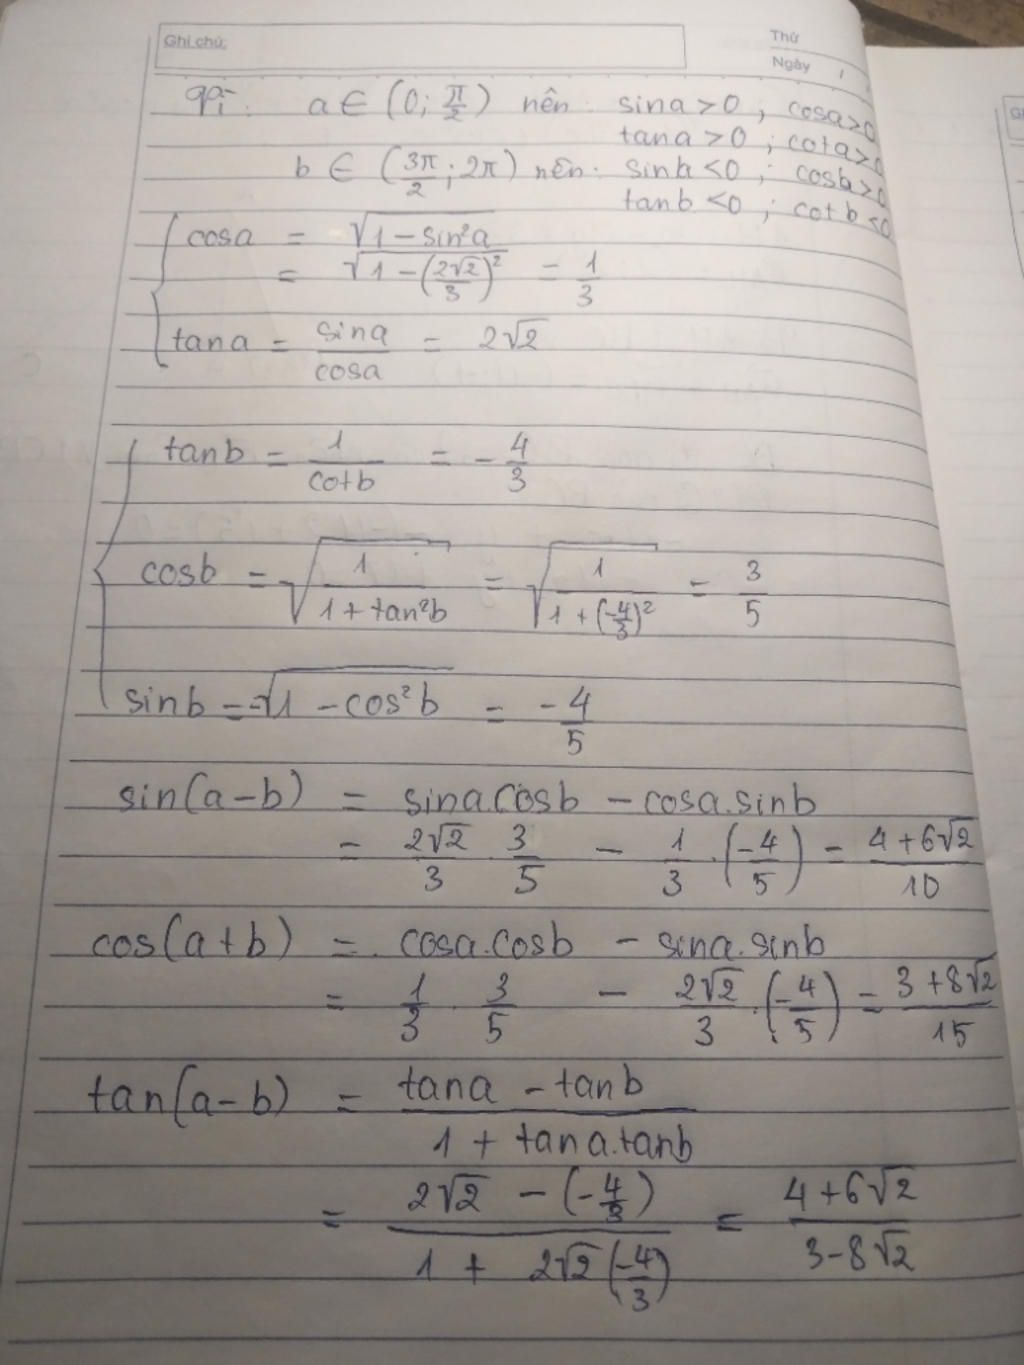 Ghi chú:
Thứ
Ngày /
a ∈ (0; π/2) nên: sina > 0 ; cosa > 0
tana > 0 ; cota > 0
b ∈ (3π/2; 2π) nên: sinb < 0 ; cosb > 0
tanb < 0 ; cotb < 0
cosa = √(1 - sin²a)
= √(1 - (2√2/3)²) = 1/3
tana = sina/cosa = 2√2
tanb = 1/cotb = -4/3
cosb = √(1/(1 + tan²b)) = √(1/(1 + (-4/3)²)) = 3/5
sinb = -√(1 - cos²b) = -4/5
sin(a-b) = sina.cosb - cosa.sinb
= 2√2/3 . 3/5 - 1/3 . (-4/5) = (4+6√2)/10
cos(a+b) = cosa.cosb - sina.sinb
= 1/3 . 3/5 - 2√2/3 . (-4/5) = (3+8√2)/15
tan(a-b) = (tana - tanb)/(1 + tana.tanb)
= (2√2 - (-4/3))/(1 + 2√2(-4/3)) = (4+6√2)/(3-8√2)